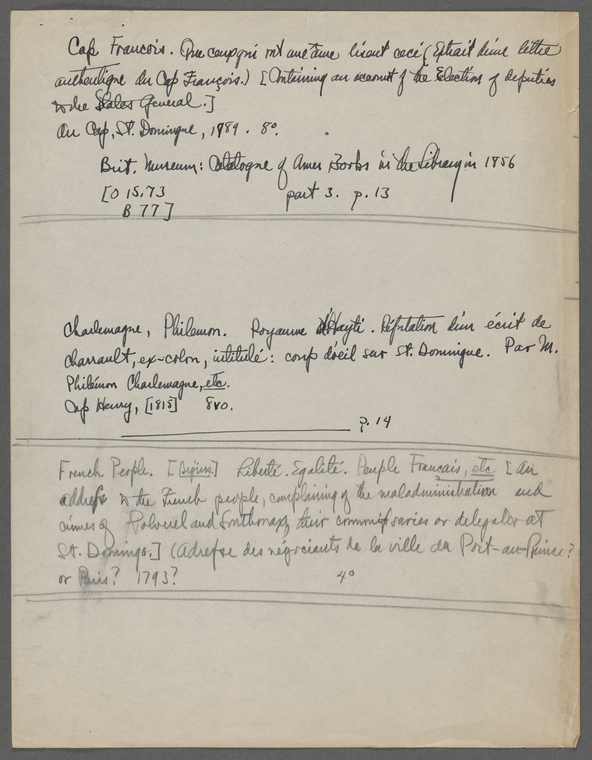 Cap Francois. Que ceux qui ont une âme lisent ceci (Extrait d'une lettre
authentique du Cap François.) [Containing an account of the Election of deputies
to the States General.]
Au Cap, St. Domingue, 1789. 8º.
Brit. Museum: Catalogue of Amer Books in the Library in 1856
[O 15.73 part 3. p. 13
B 77]
Charlemagne, Philemon. Royaume d'Hayti. Réfutation d'un écrit de
Charrault, ex-colon, intitulé: coup d'oeil sur St. Domingue. Par M.
Philémon Charlemagne, etc.
Cap Henry, [1815] 8vo.
p. 14
French People. [Begins] Liberté. Egalité. Peuple Francais, etc [An
address to the French people, complaining of the maladministration and
crimes of Polverel and Sonthonax, their commissaries or delegates at
St. Domingo.] (Adresse des négociants de la ville du Port-au-Prince?
or Paris? 1793? 4º